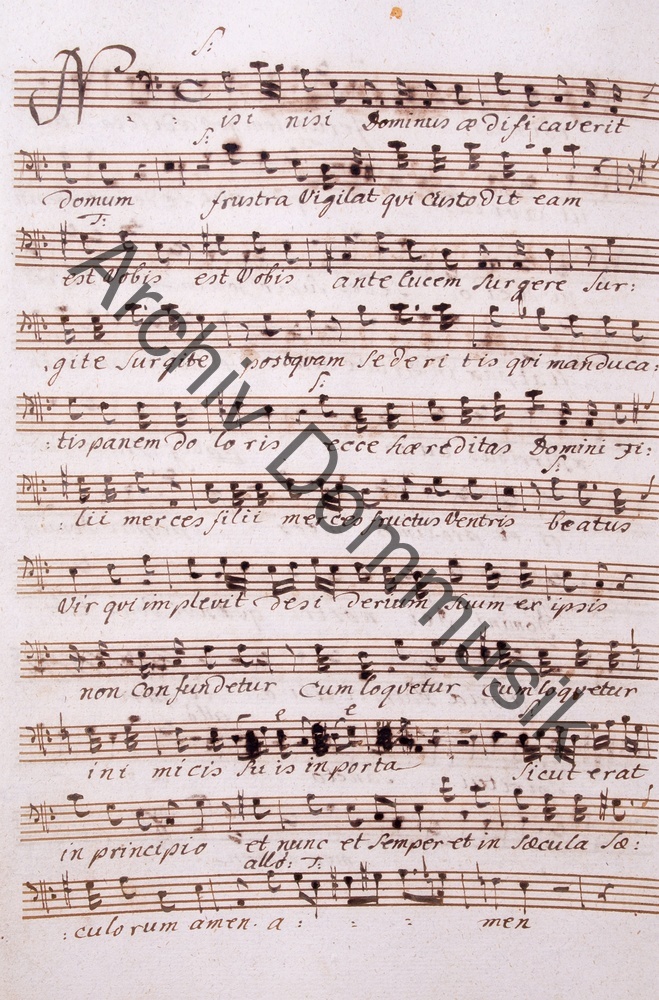 S:
N isi nisi Dominus ædificaverit
S:
domum frustra Vigilat qvi custodit eam
T:
est Vobis est Vobis ante lucem surgere sur:
:gite surgite postqvam sederitis qvi manduca:
S:
:tis panem doloris ecce hæreditas Domini Fi:
S:
:lii merces filii merces fructus Ventris beatus
Vir qvi implevit desiderium suum ex ipsis
non confundetur cum loqvetur cum loqvetur
e e
inimicis suis in porta sicut erat
in principio et nunc et semper et in sæcula sæ:
allo: T:
:culorum amen. a : men
Archiv Dommusik